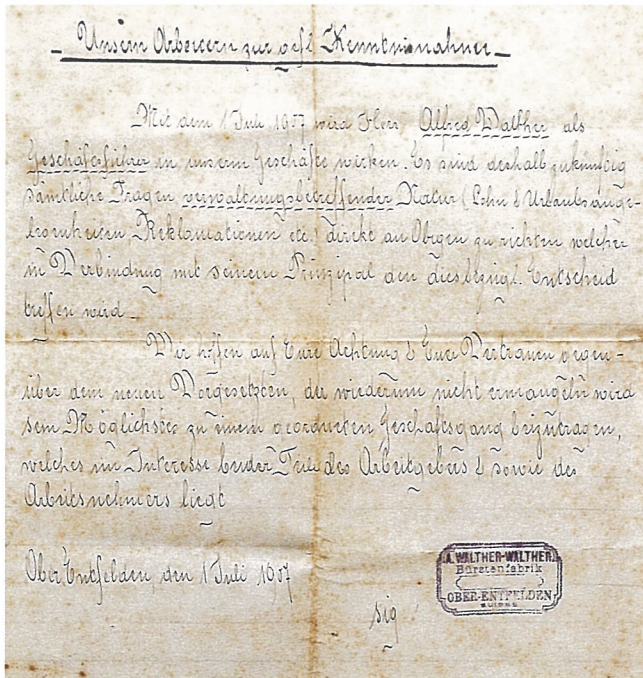 Unsern Arbeitern zur gefl. Kenntnisnahme
Mit dem 1 Juli 1907 wird Herr Alfred Walther als
Geschäftsführer in unserm Geschäfte wirken. Es sind deshalb zukünftig
sämtliche Fragen verwaltungsbetreffender Natur (Lohn & Urlaubsange-
legenheiten Reklamationen etc.) direkt an Obigen zu richten welcher
in Verbindung mit seinem Prinzipal den diesbezügl. Entscheid
treffen wird.
Wir hoffen auf Eure Achtung & Euer Vertrauen gegen-
über dem neuen Vorgesetzten, der wiederum nicht ermangeln wird
sein Möglichstes zu einem geordneten Geschäftsgang beizutragen,
welches im Interesse beider Teile des Arbeitgebers & sowie des
Arbeitsnehmers liegt
Ober Entfelden, den 1 Juli 1907
A. WALTHER-WALTHER.
Bürstenfabrik
OBER-ENTFELDEN
SUISSE
sig